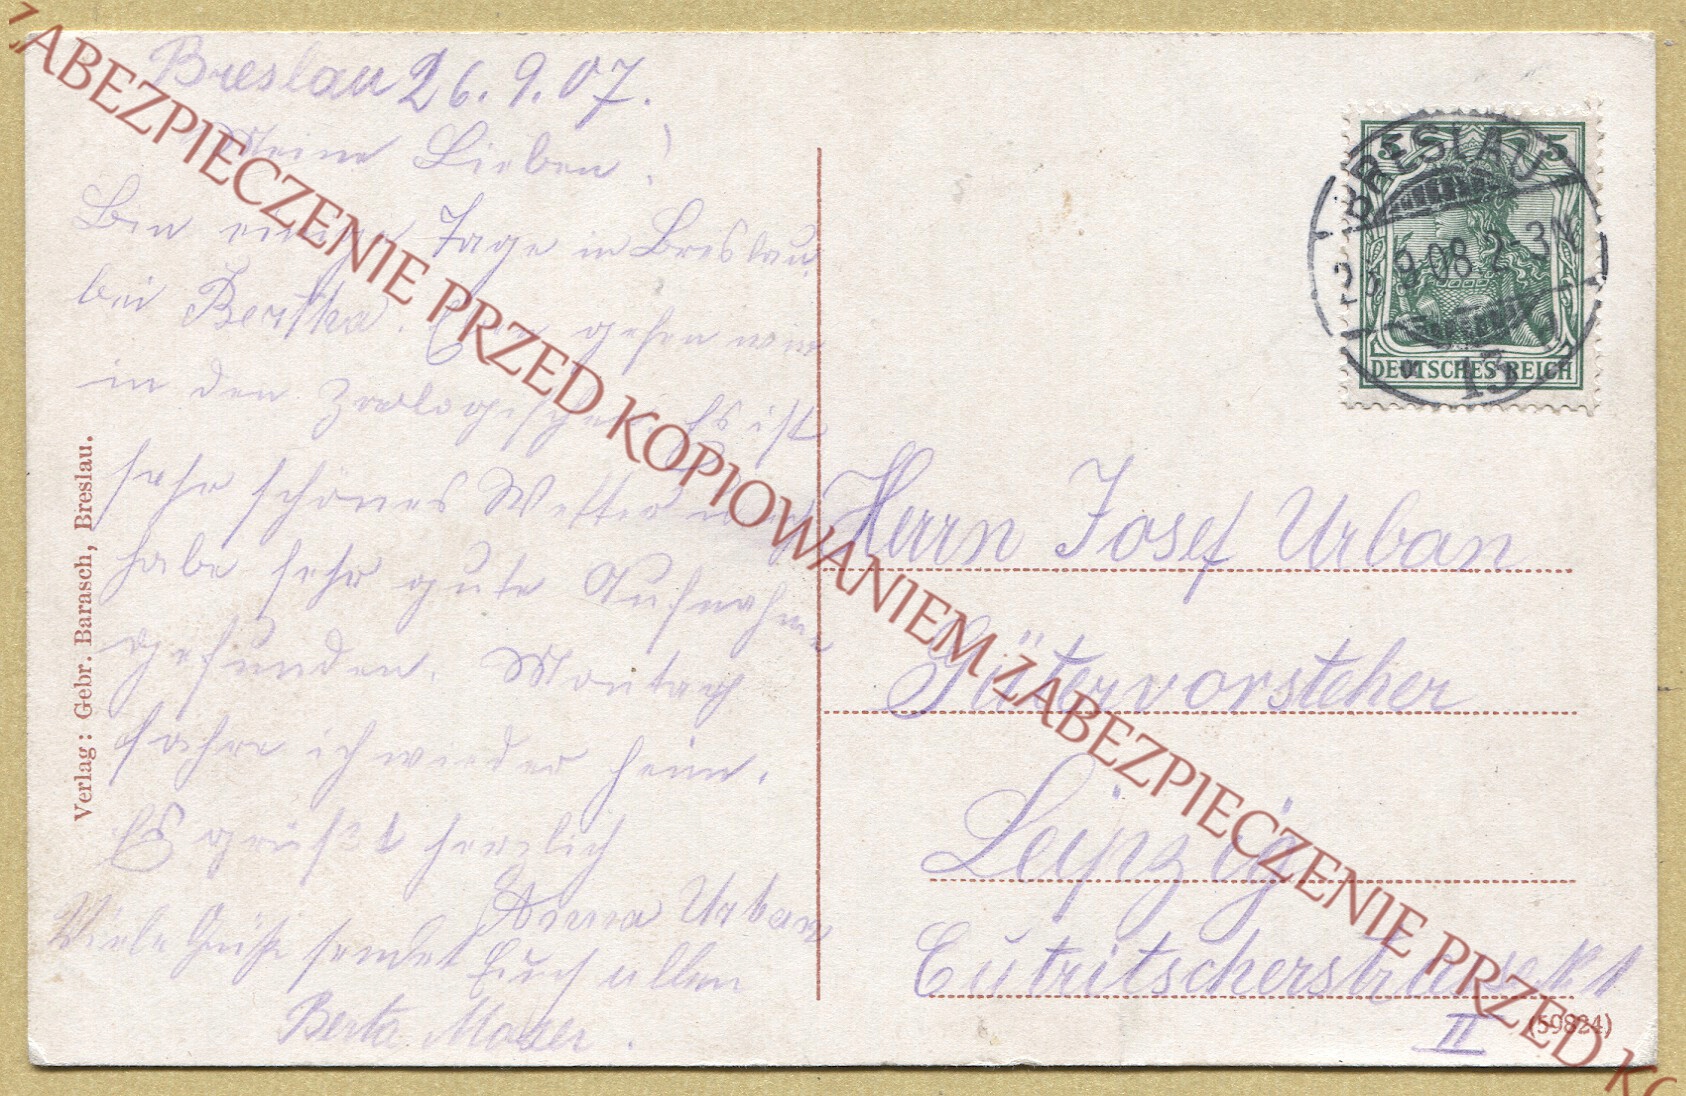 Breslau 26.9.07.
Meine Lieben!
Bin einige Tage in Breslau
bei Bertha. Eben gehen wir
in den Zoologischen. Es ist
sehr schönes Wetter
habe sehr gute Aufnahme
gefunden. Montag
fahre ich wieder heim.
Es grüßt herzlich
Anna Urban
Viele Grüße sendet Euch allen
Berta
Verlag: Gebr. Barasch, Breslau.
5 5
DEUTSCHES REICH
BRESLAU
9.08.2-3N
13
Herrn Josef Urban
Gütervorsteher
Leipzig
II
(59824)
ZABEZPIECZENIE PRZED KOPIOWANIEM ZABEZPIECZENIE PRZED KO